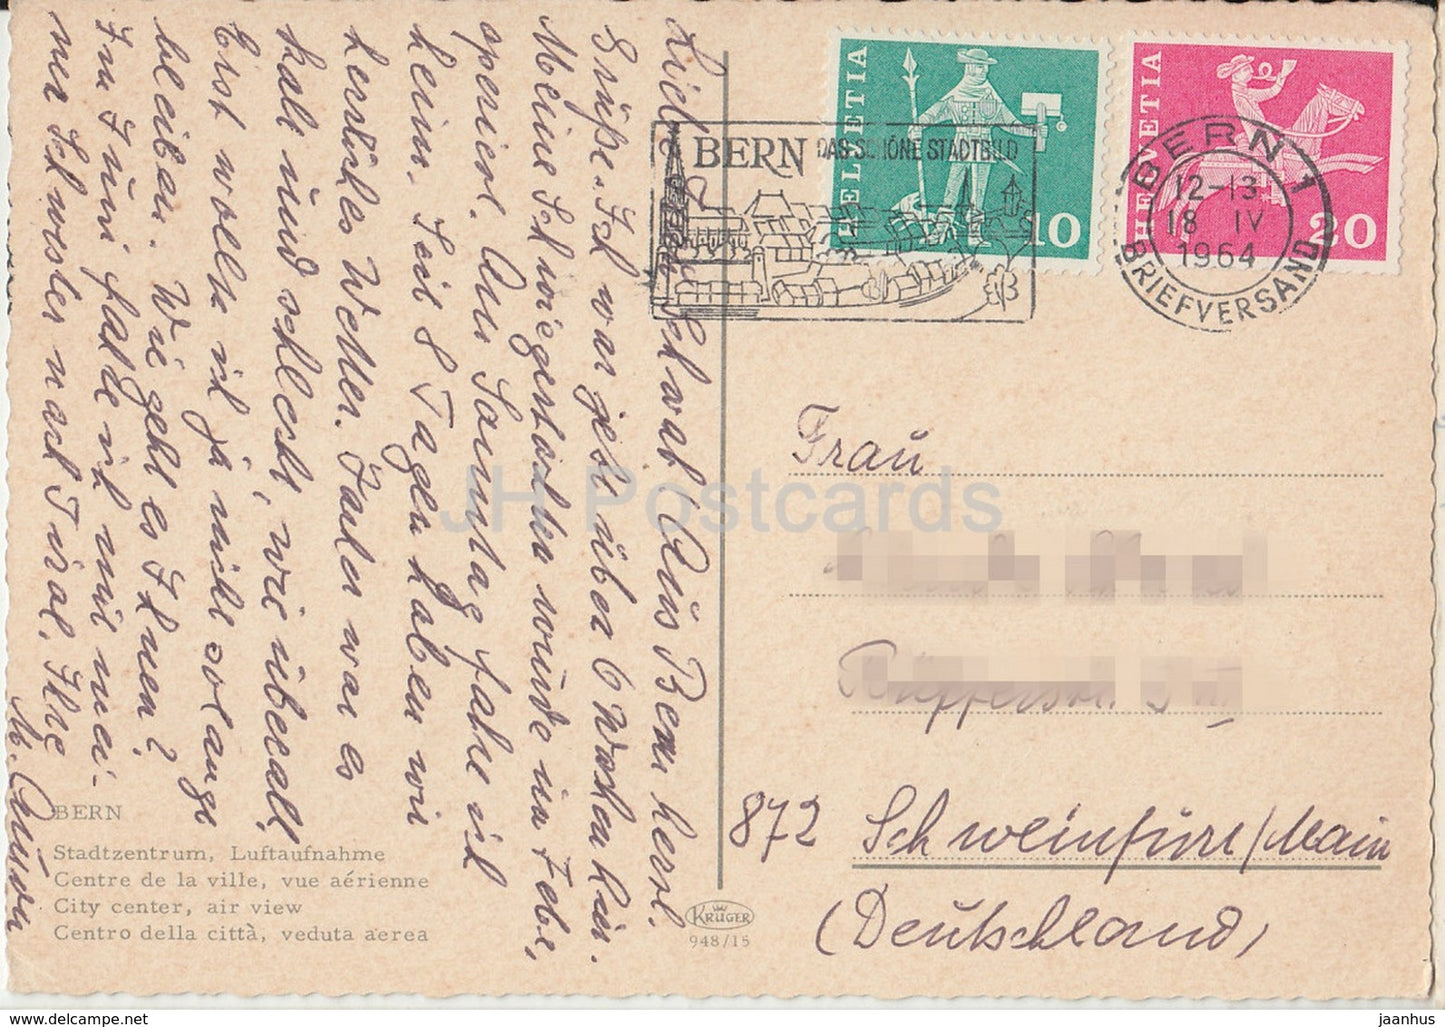 Liebe Frau Schwab! Aus Bern herzl.
Grüße. Ich war jetzt über 6 Wochen hier.
Meine Schwiegertochter wurde im Febr.
operiert. Am Sonntag fahre ich
heim. Seit 8 Tagen haben wir
herrliches Wetter. Fauler war es
kalt und schlecht, wie überall.
Erst wollte ich ja nicht solange
bleiben. Wie geht es Ihnen?
Im Juni fahre ich mit mei-
ner Schwester nach Tirol. Ihre
BERN
Stadtzentrum, Luftaufnahme
Centre de la ville, vue aérienne
City center, air view
Centro della città, veduta aerea
KRÜGER
948/15
HELVETIA
10
HELVETIA
20
BERN DAS SCHÖNE STADTBILD
BERN 1
12-13
18 IV
1964
BRIEFVERSAND
Frau
872 Schweinfurt/Main
(Deutschland)
JH Postcards
https://www.ebay.com/str/jaanhus
jaanhus